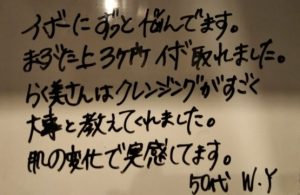 イボーにずっと悩んでます。
まぶた上 3ケ イボ取れました。
らく美さんはクレンジングがすごく
大事と教えてくれました。
肌の変化で実感してます。
50代 W.Y